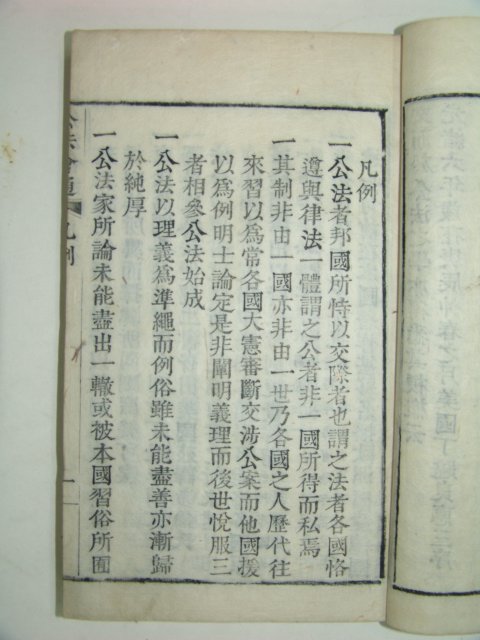 凡例
一公法者邦國所恃以交際者也謂之法者各國恪
遵與律法一體謂之公者非一國所得而私焉
一其制非由一國亦非由一世乃各國之人歷代往
來習以爲常各國大憲審斷交涉公案而他國援
以爲例明士論定是非闡明義理而後世悅服三
者相參公法始成
一公法以理義爲準繩而例俗雖未能盡善亦漸歸
於純厚
一公法家所論未能盡出一轍或被本國習俗所囿
公法會通 凡例 一